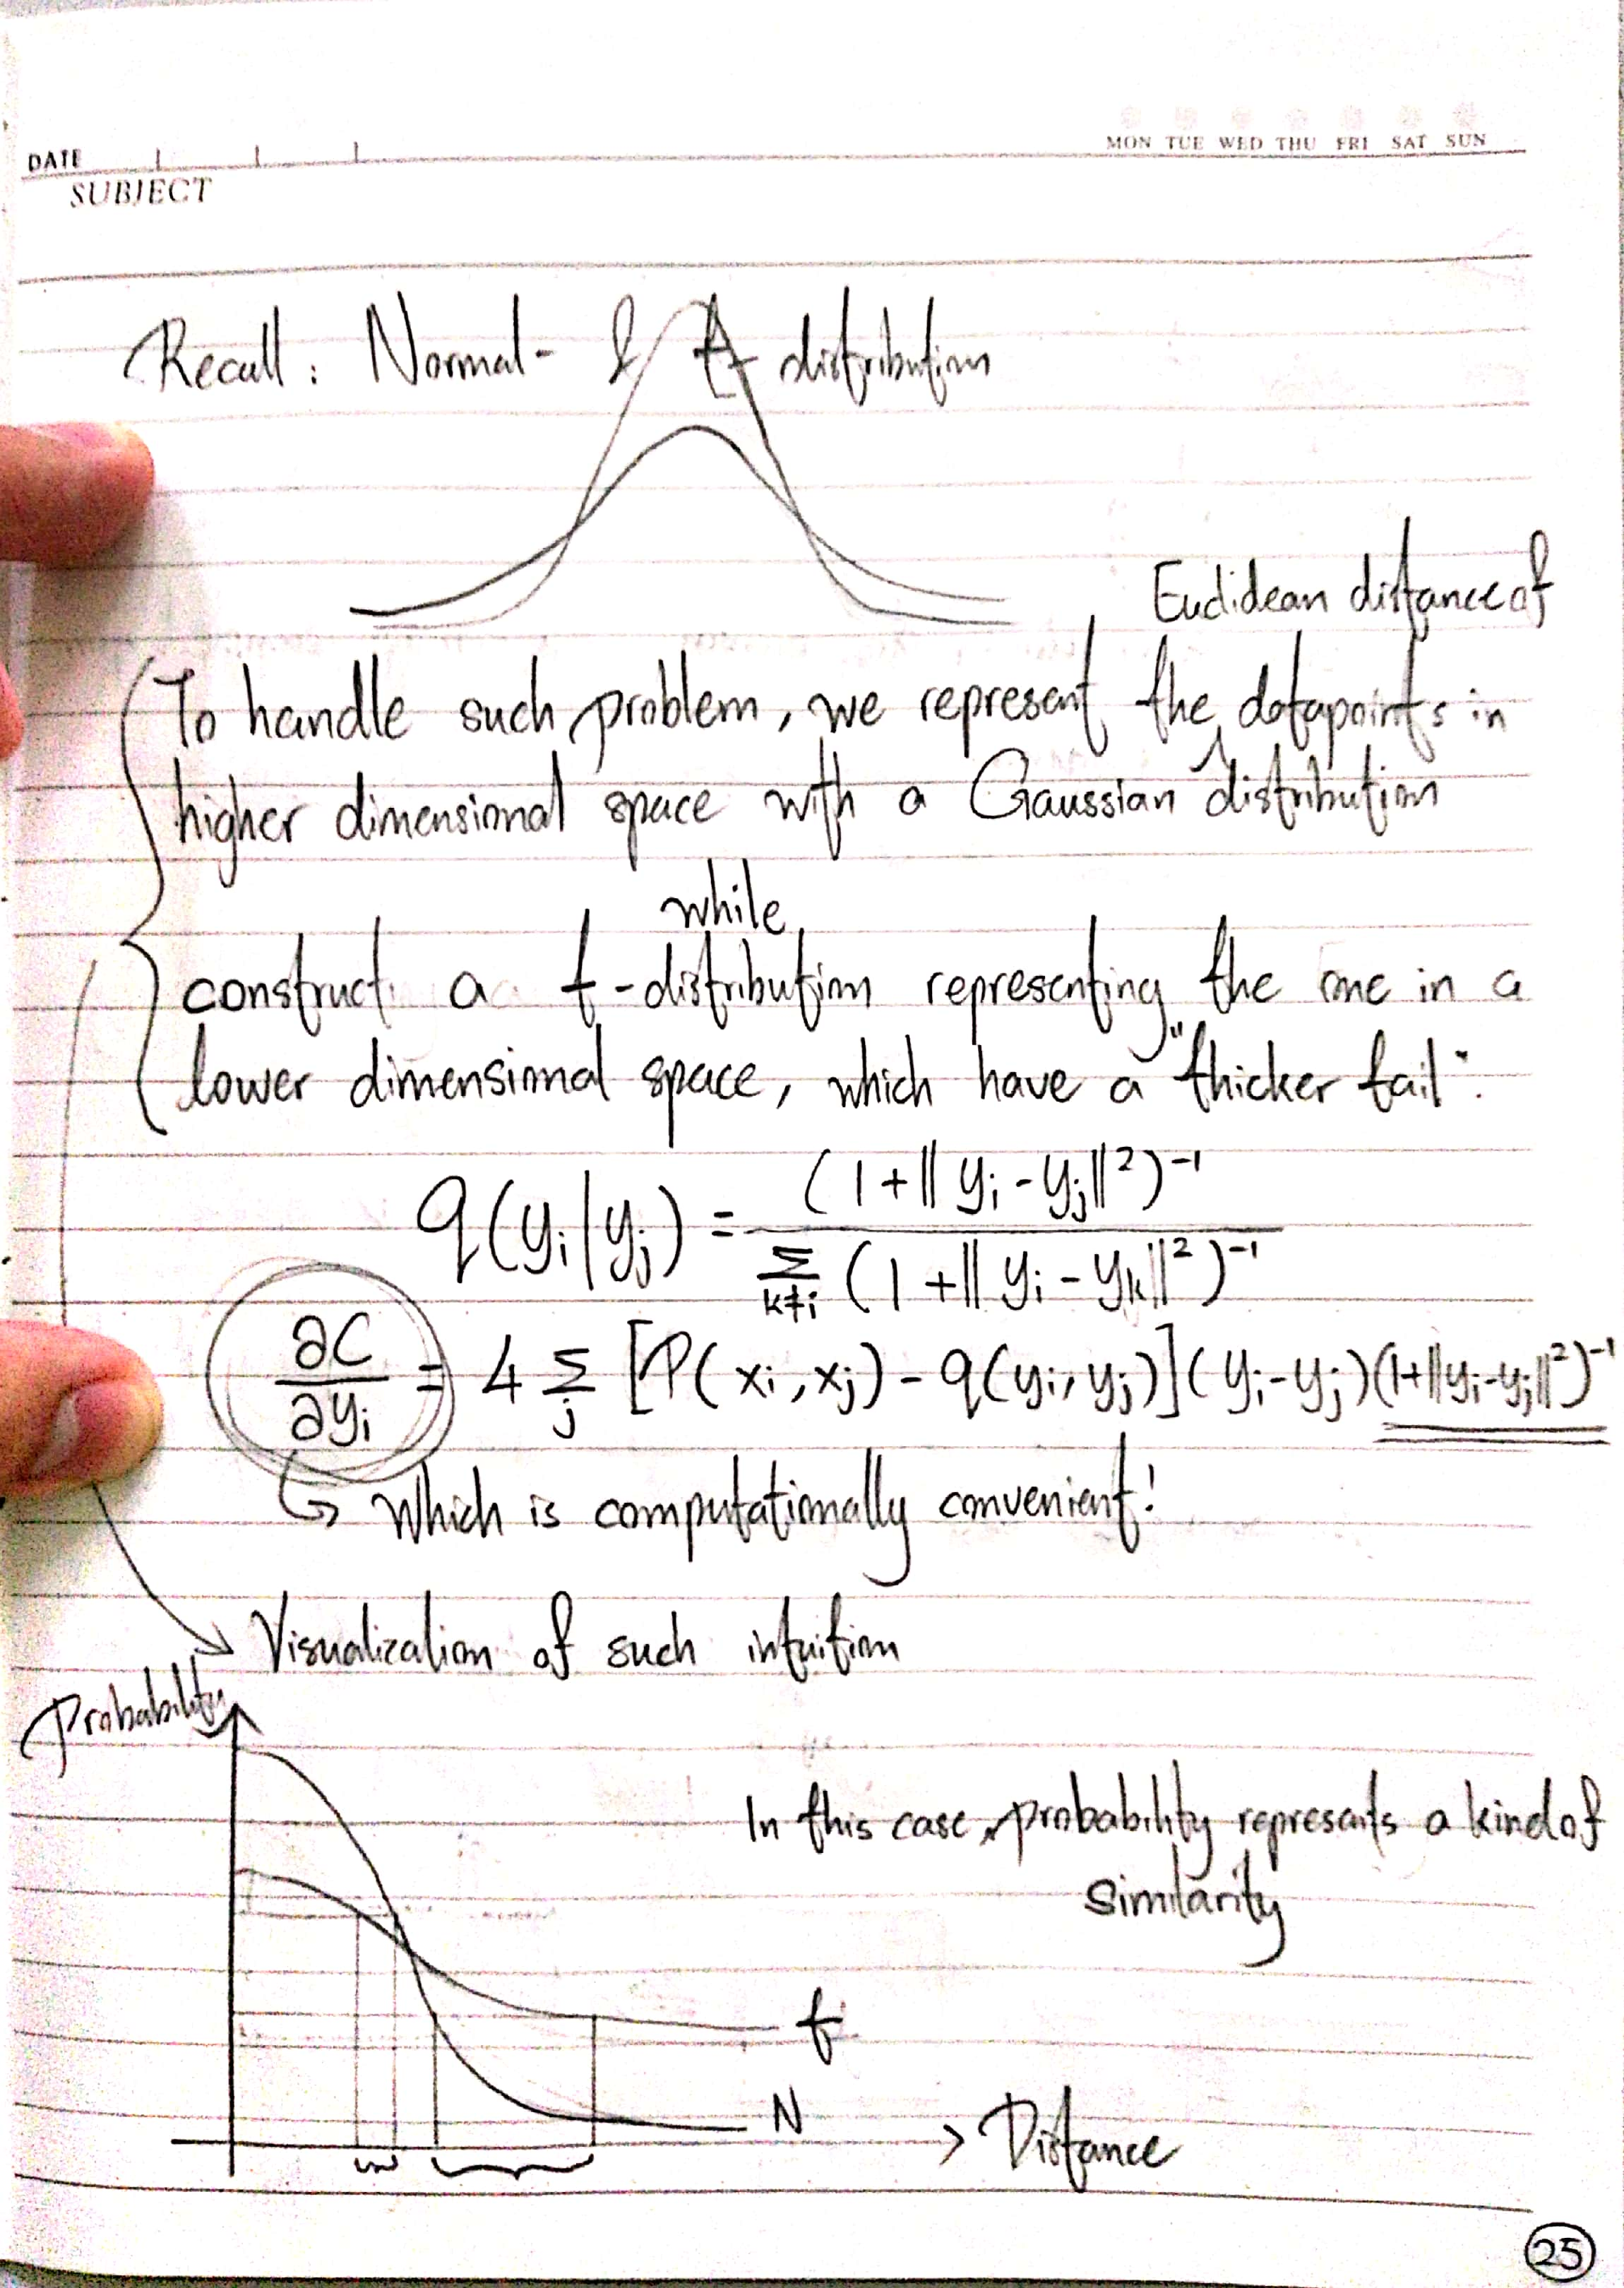 MON TUE WED THU FRI SAT SUN
DATE
SUBJECT
Recall: Normal- & t distribution
Euclidean distance of
To handle such problem, we represent the ^ datapoints in
higher dimensional space with a Gaussian distribution
while
construct a t-distribution representing the one in a
lower dimensional space, which have a "thicker tail".
q(yi|yj) = (1+||yi-yj||²)⁻¹ / Σk≠i (1+||yi-yk||²)⁻¹
∂C/∂yi = 4 Σj [P(xi,xj)-q(yi,yj)](yi-yj)(1+||yi-yj||²)⁻¹
↪ Which is computationally convenient!
Visualization of such intuition
Probability
In this case, probability represents a kind of
similarity
t
N
→ Distance
25